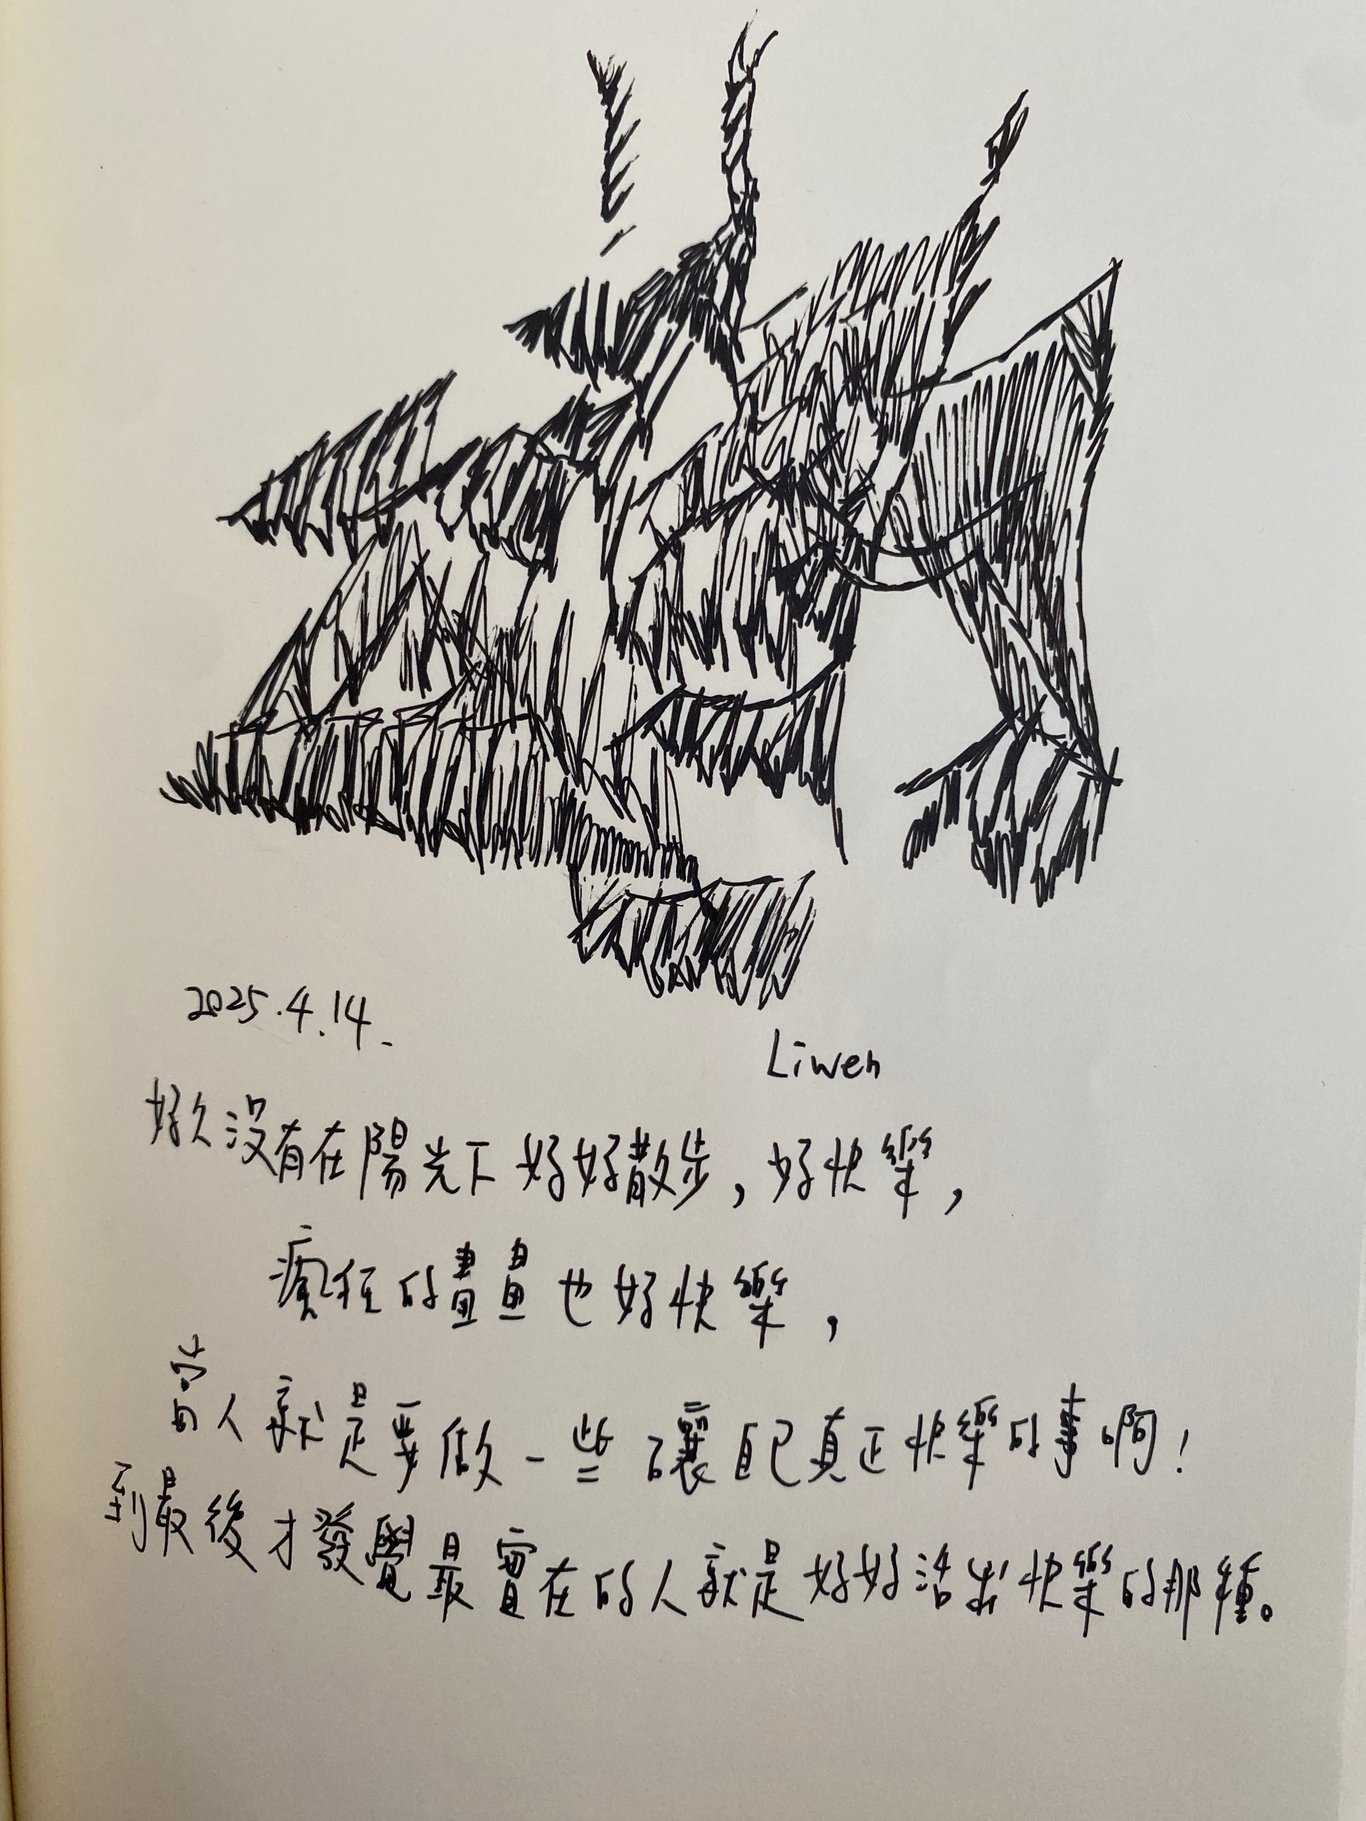 2025.4.14.
Liwen
好久沒有在陽光下好好散步，好快樂，
瘋狂的畫畫也好快樂，
當人就是要做一些讓自己真正快樂的事啊！
到最後才發覺最實在的人就是好好活出快樂的那種。